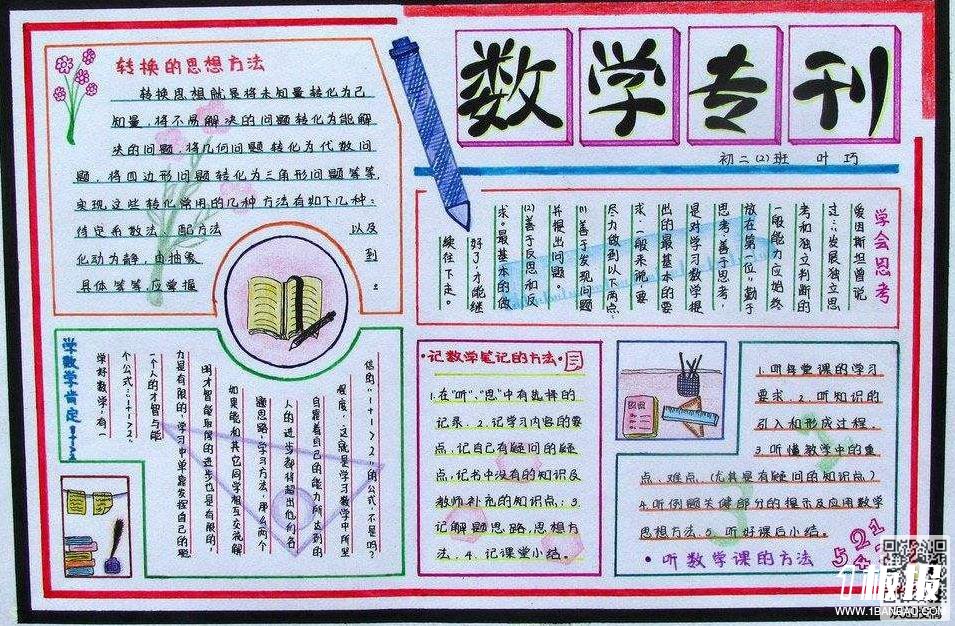 数学专刊
初二(2)班 叶巧
转换的思想方法
转换思想就是将未知量转化为已
知量,将不易解决的问题转化为能解
决的问题,将几何问题转化为代数问
题,将四边形问题转化为三角形问题等等,
实现这些转化常用的几种方法有如下几种:
待定系数法、配方法 以及
化动为静,由抽象 到
具体等等,应掌握 。
学会思考
爱因斯坦曾说
过:“发展独立思
考和独立判断的
一般能力应始终
放在第一位”勤于
思考,善于思考,
是对学习数学提
出的最基本的要
求,一般来说,要
尽力做到以下两点,
(1)善于发现问题
并提出问题。
(2)善于反思和反
求。最基本的做
好了,才能继
续往下走。
学数学肯定1+1>2
学好数学,有一
个公式:“1+1>2.”
一个人的才智与能
力是有限的,学习中单靠发挥自己的聪
明才智能取得的进步也是有限的,
如果能和其它同学相互交流解
题思路,学习方法,那么两个
人的进步都将超出他们各
自靠着自己的能力所达到的
程度,这就是学习数学中所坚
信的“1+1>2”的公式,不是吗?
·记数学笔记的方法·
1.在“听”、“思”中有选择的
记录. 2. 记学习内容的要
点,记自己有疑问的疑
点,记书中没有的知识及
教师补充的知识点; 3.
记解题思路,思想方
法. 4. 记课堂小结。
1. 听每堂课的学习
要求. 2. 听知识的
引入和形成过程.
3. 听懂教学中的重
点、难点. (尤其是有疑问的知识点)
4.听例题关健部分的提示及应用数学
思想方法. 5. 听好课后小结。
·听数学课的方法
1板报
WWW.1BANBAO.COM